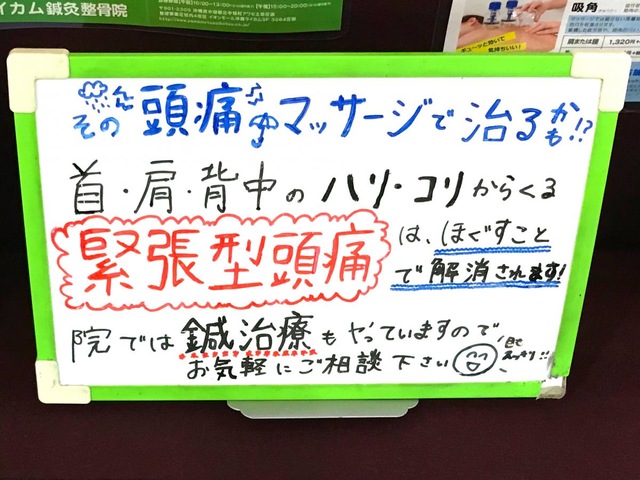 イカム鍼灸整骨院
吸角
キューッと吸いて
気持ちいい!
1,320
その頭痛マッサージで治るかも!?
首・肩・背中のハリ・コリからくる
緊張型頭痛は、ほぐすこと
で解消されます!
院では鍼治療もやっていますので
お気軽にご相談下さい